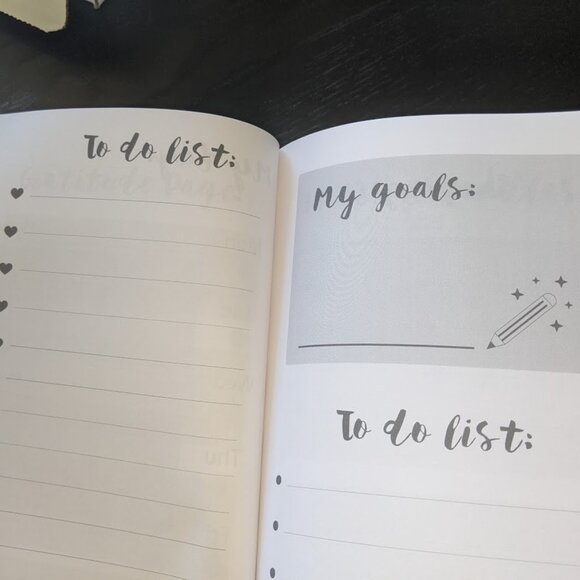 To do list:
My goals:
To do list: